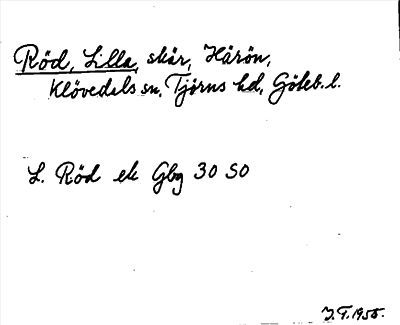 Röd, Lilla, skär, Härön,
Klövedals sn, Tjörns hd, Göteb. l.
L. Röd ek Gbg 30 SO